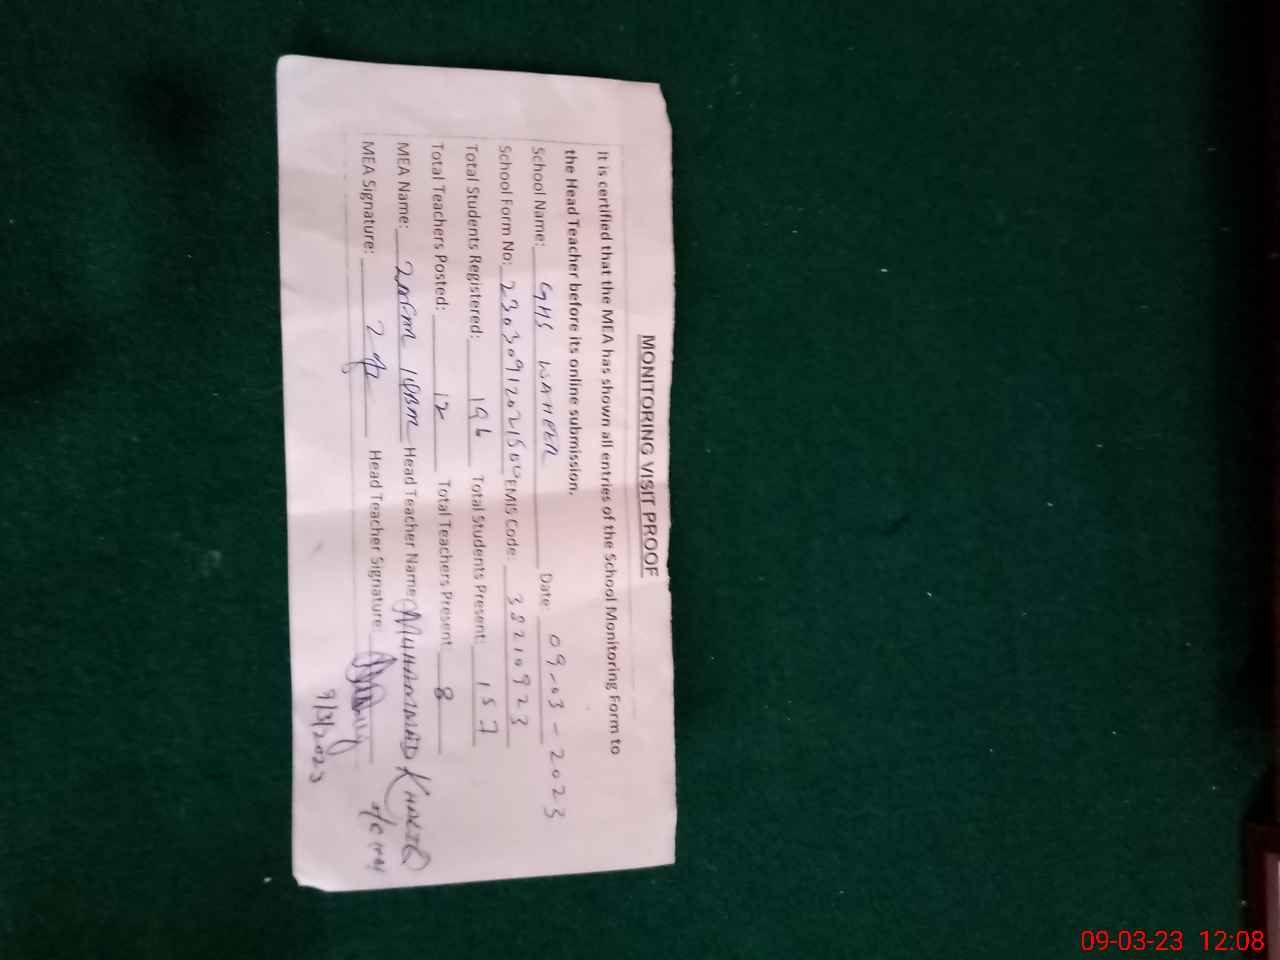 MONITORING VISIT PROOF
It is certified that the MEA has shown all entries of the School Monitoring Form to
the Head Teacher before its online submission.
School Name: GHS Date: 09-03-2023
School Form No: EMIS Code: 38210923
Total Students Registered: 196 Total Students Present: 157
Total Teachers Posted: 12 Total Teachers Present: 8
MEA Name: Head Teacher Name: MUHAMMAD
MEA Signature: Head Teacher Signature:
9/3/2023
09-03-23 12:08